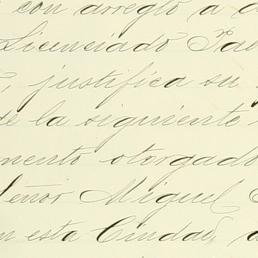 con arreglo a
Licenciado Pab
justifica su
de la siguiente
mento otorgado
Señor Miguel
en esta Ciudad,